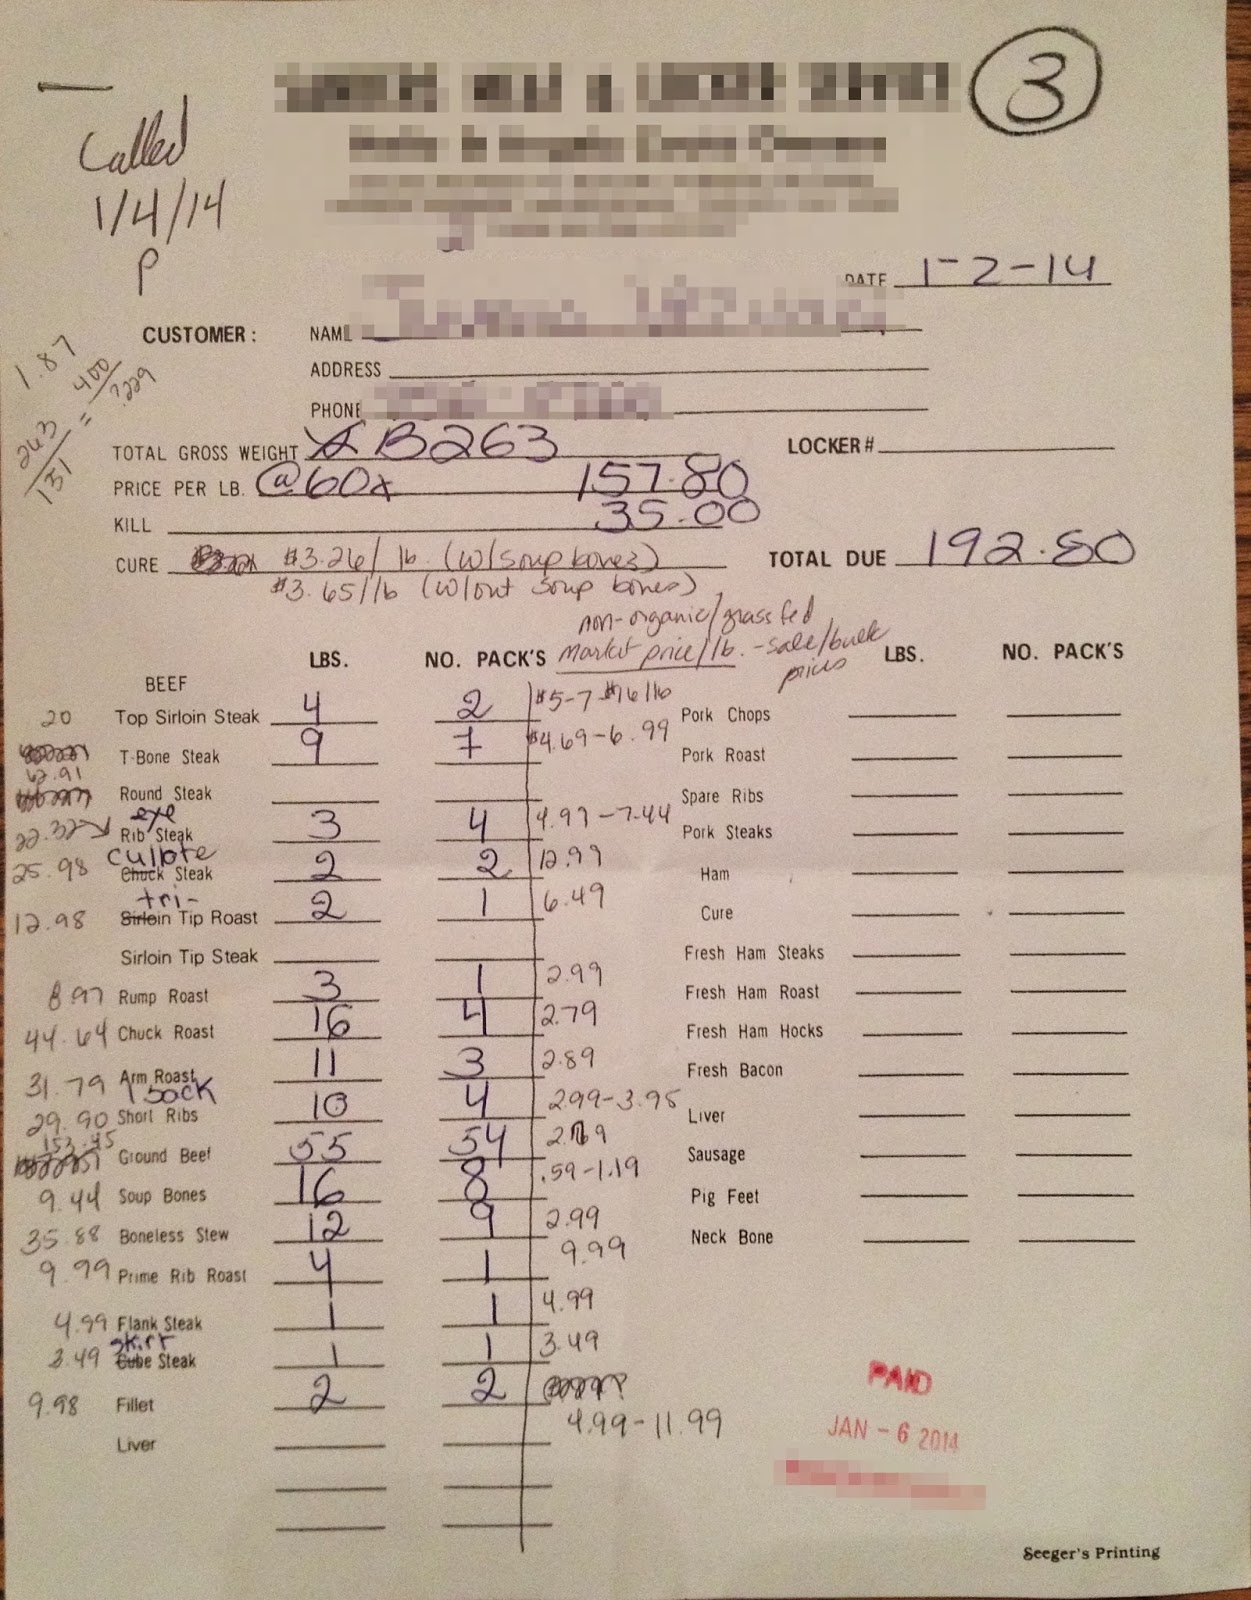 3
Called
1/4/14
P
DATE 1-2-14
CUSTOMER: NAME
ADDRESS
PHONE
1.87
263/151 = 400/?.229
TOTAL GROSS WEIGHT B263 LOCKER#
PRICE PER LB. @60 157.80
KILL 35.00
CURE $3.26/lb. (w/soup bones) TOTAL DUE 192.80
$3.65/lb (w/out soup bones)
non-organic/grass fed
market price/lb. -sale/bulk prices
LBS. NO. PACK'S LBS. NO. PACK'S
BEEF
20 Top Sirloin Steak 4 2 $5-7 Pork Chops
62.91 T-Bone Steak 9 7 $4.69-6.99 Pork Roast
Round Steak Spare Ribs
22.32 Rib eye Steak 3 4 4.97-7.44 Pork Steaks
25.98 Chuck culotte Steak 2 2 12.99 Ham
12.98 Sirloin tri- Tip Roast 2 1 6.49 Cure
Sirloin Tip Steak Fresh Ham Steaks
8.97 Rump Roast 3 1 2.99 Fresh Ham Roast
44.64 Chuck Roast 16 4 2.79 Fresh Ham Hocks
31.79 Arm Roast 11 3 2.89 Fresh Bacon
29.90 Back Short Ribs 10 4 2.99-3.95 Liver
153.45 Ground Beef 55 54 Sausage
9.44 Soup Bones 16 8 .59-1.19 Pig Feet
35.88 Boneless Stew 12 9 2.99 Neck Bone
9.99 Prime Rib Roast 4 1 9.99
4.99 Flank Steak 1 1 4.99
3.49 Cube skirt Steak 1 1 3.49
9.98 Fillet 2 2
4.99-11.99
Liver
PAID
JAN - 6 2014
Seeger's Printing